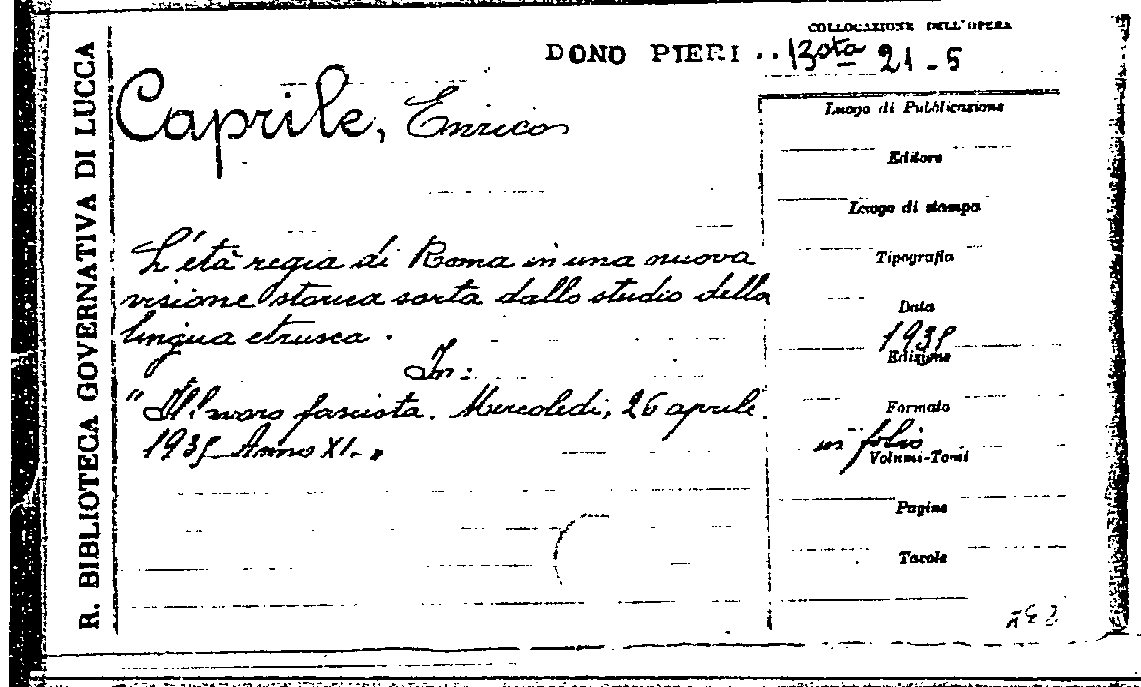 R. BIBLIOTECA GOVERNATIVA DI LUCCA
COLLOCAZIONE DELL'OPERA
DONO PIERI .. 13 sta 21 - 5
Caprile, Enrico
L'età regia di Roma in una nuova
visione storica sorta dallo studio della
lingua etrusca.
In:
"Il lavoro fascista. Mercoledi, 26 aprile.
1933 Anno XI."
Luogo di Pubblicazione
Editore
Luogo di stampa
Tipografia
Data
1933
Edizione
Formato
in folio
Volumi-Tomi
Pagine
Tavole